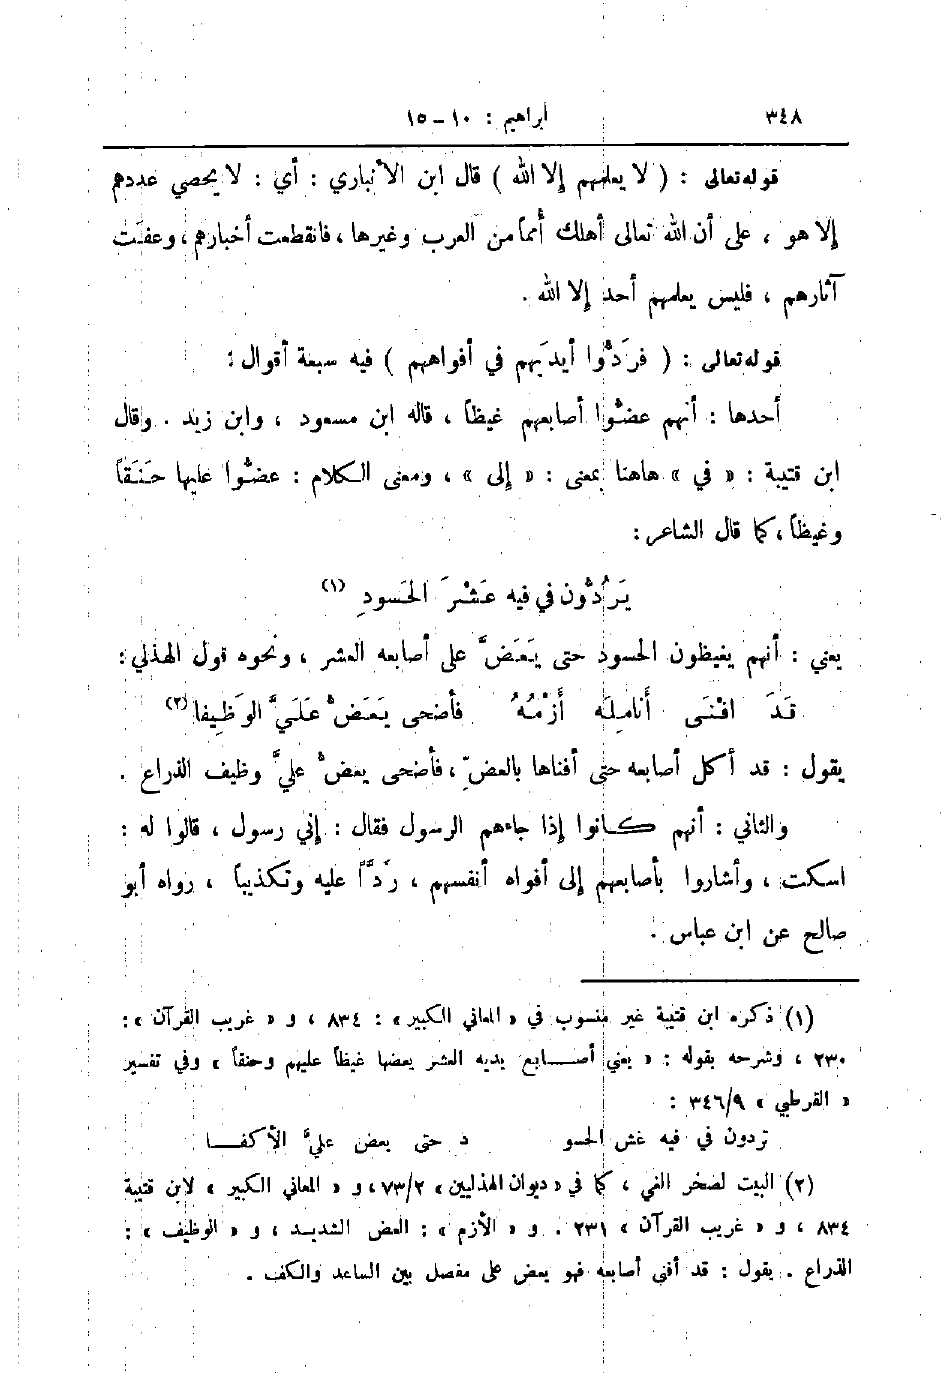 ٣٤٨
ابراهيم : ١٠ – ١٥
قوله تعالى : ( لا يعلمهم إلا الله ) قال ابن الأنباري : أي : لا يحصي عددهم
إلا هو ، على أن الله تعالى أهلك أُمماً من العرب وغيرها ، فانقطعت أخبارهم ، وعفت
آثارهم ، فليس يعلمهم أحد إلا الله .
قوله تعالى : ( فَرَدُّوا أيديَهم في أفواههم ) فيه سبعة أقوال :
أحدها : أنهم عضُّوا أصابعهم غيظاً ، قاله ابن مسعود ، وابن زيد . وقال
ابن قتيبة : « في » هاهنا بمعنى : « إلى » ، ومعنى الكلام : عضُّوا عليها حَنَقاً
وغيظاً ، كما قال الشاعر :
يَرُدُّون في فيه عَشْرَ الحَسودِ (١)
يعني : أنهم يغيظون الحسود حتى يَعَضَّ على أصابعه العشر ، ونحوه قول الهذلي :
قَدَ افْنَى أَنامِلَه أَزْمُهُ فأضحى يَعَضُّ عَلَيَّ الوَظِيفا (٢)
يقول : قد أكل أصابعه حتى أفناها بالعضِّ ، فأضحى يعضُّ عليَّ وظيف الذراع .
والثاني : أنهم كانوا إذا جاءهم الرسول فقال : إني رسول ، قالوا له :
اسكت ، وأشاروا بأصابعهم إلى أفواه أنفسهم ، رَدَّاً عليه وتكذيباً ، رواه أبو
صالح عن ابن عباس .
(١) ذكره ابن قتيبة غير منسوب في « المعاني الكبير » : ٨٣٤ ، و « غريب القرآن » :
٢٣٠ ، وشرحه بقوله : « يعني أصابع يديه العشر يعضها غيظاً عليهم وحنقاً » وفي تفسير
« القرطبي » ٣٤٦/٩ :
تردون في فيه غش الحسو د حتى يعض عليَّ الأكفا
(٢) البيت لصخر الغي ، كما في « ديوان الهذليين » ٧٣/٢ ، و « المعاني الكبير » لابن قتيبة
٨٣٤ ، و « غريب القرآن » ٢٣١ . و « الأزم » : العض الشديد ، و « الوظيف » :
الذراع . يقول : قد أفنى أصابعه فهو يعض على مفصل بين الساعد والكف .